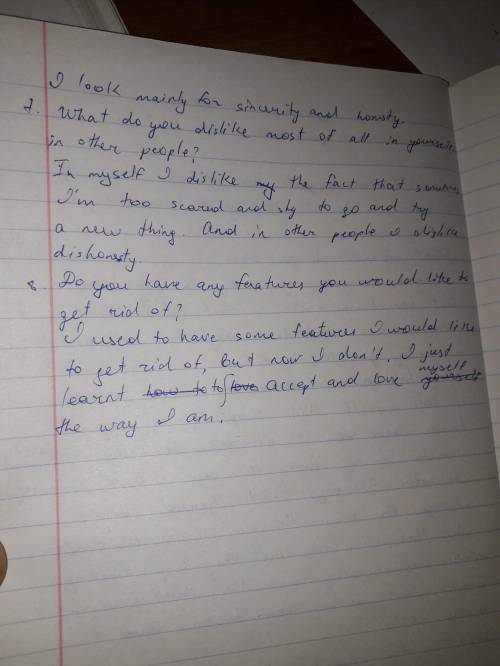 I look mainly for sincerity and honesty.
7. What do you dislike most of all in yourself,
in other people?
In myself I dislike my the fact that sometimes
I'm too scared and shy to go and try
a new thing. And in other people I dislike
dishonesty.
8. Do you have any features you would like to
get rid of?
I used to have some features I would like
to get rid of, but now I don't. I just
learnt how to to love accept and love yourself myself
the way I am.